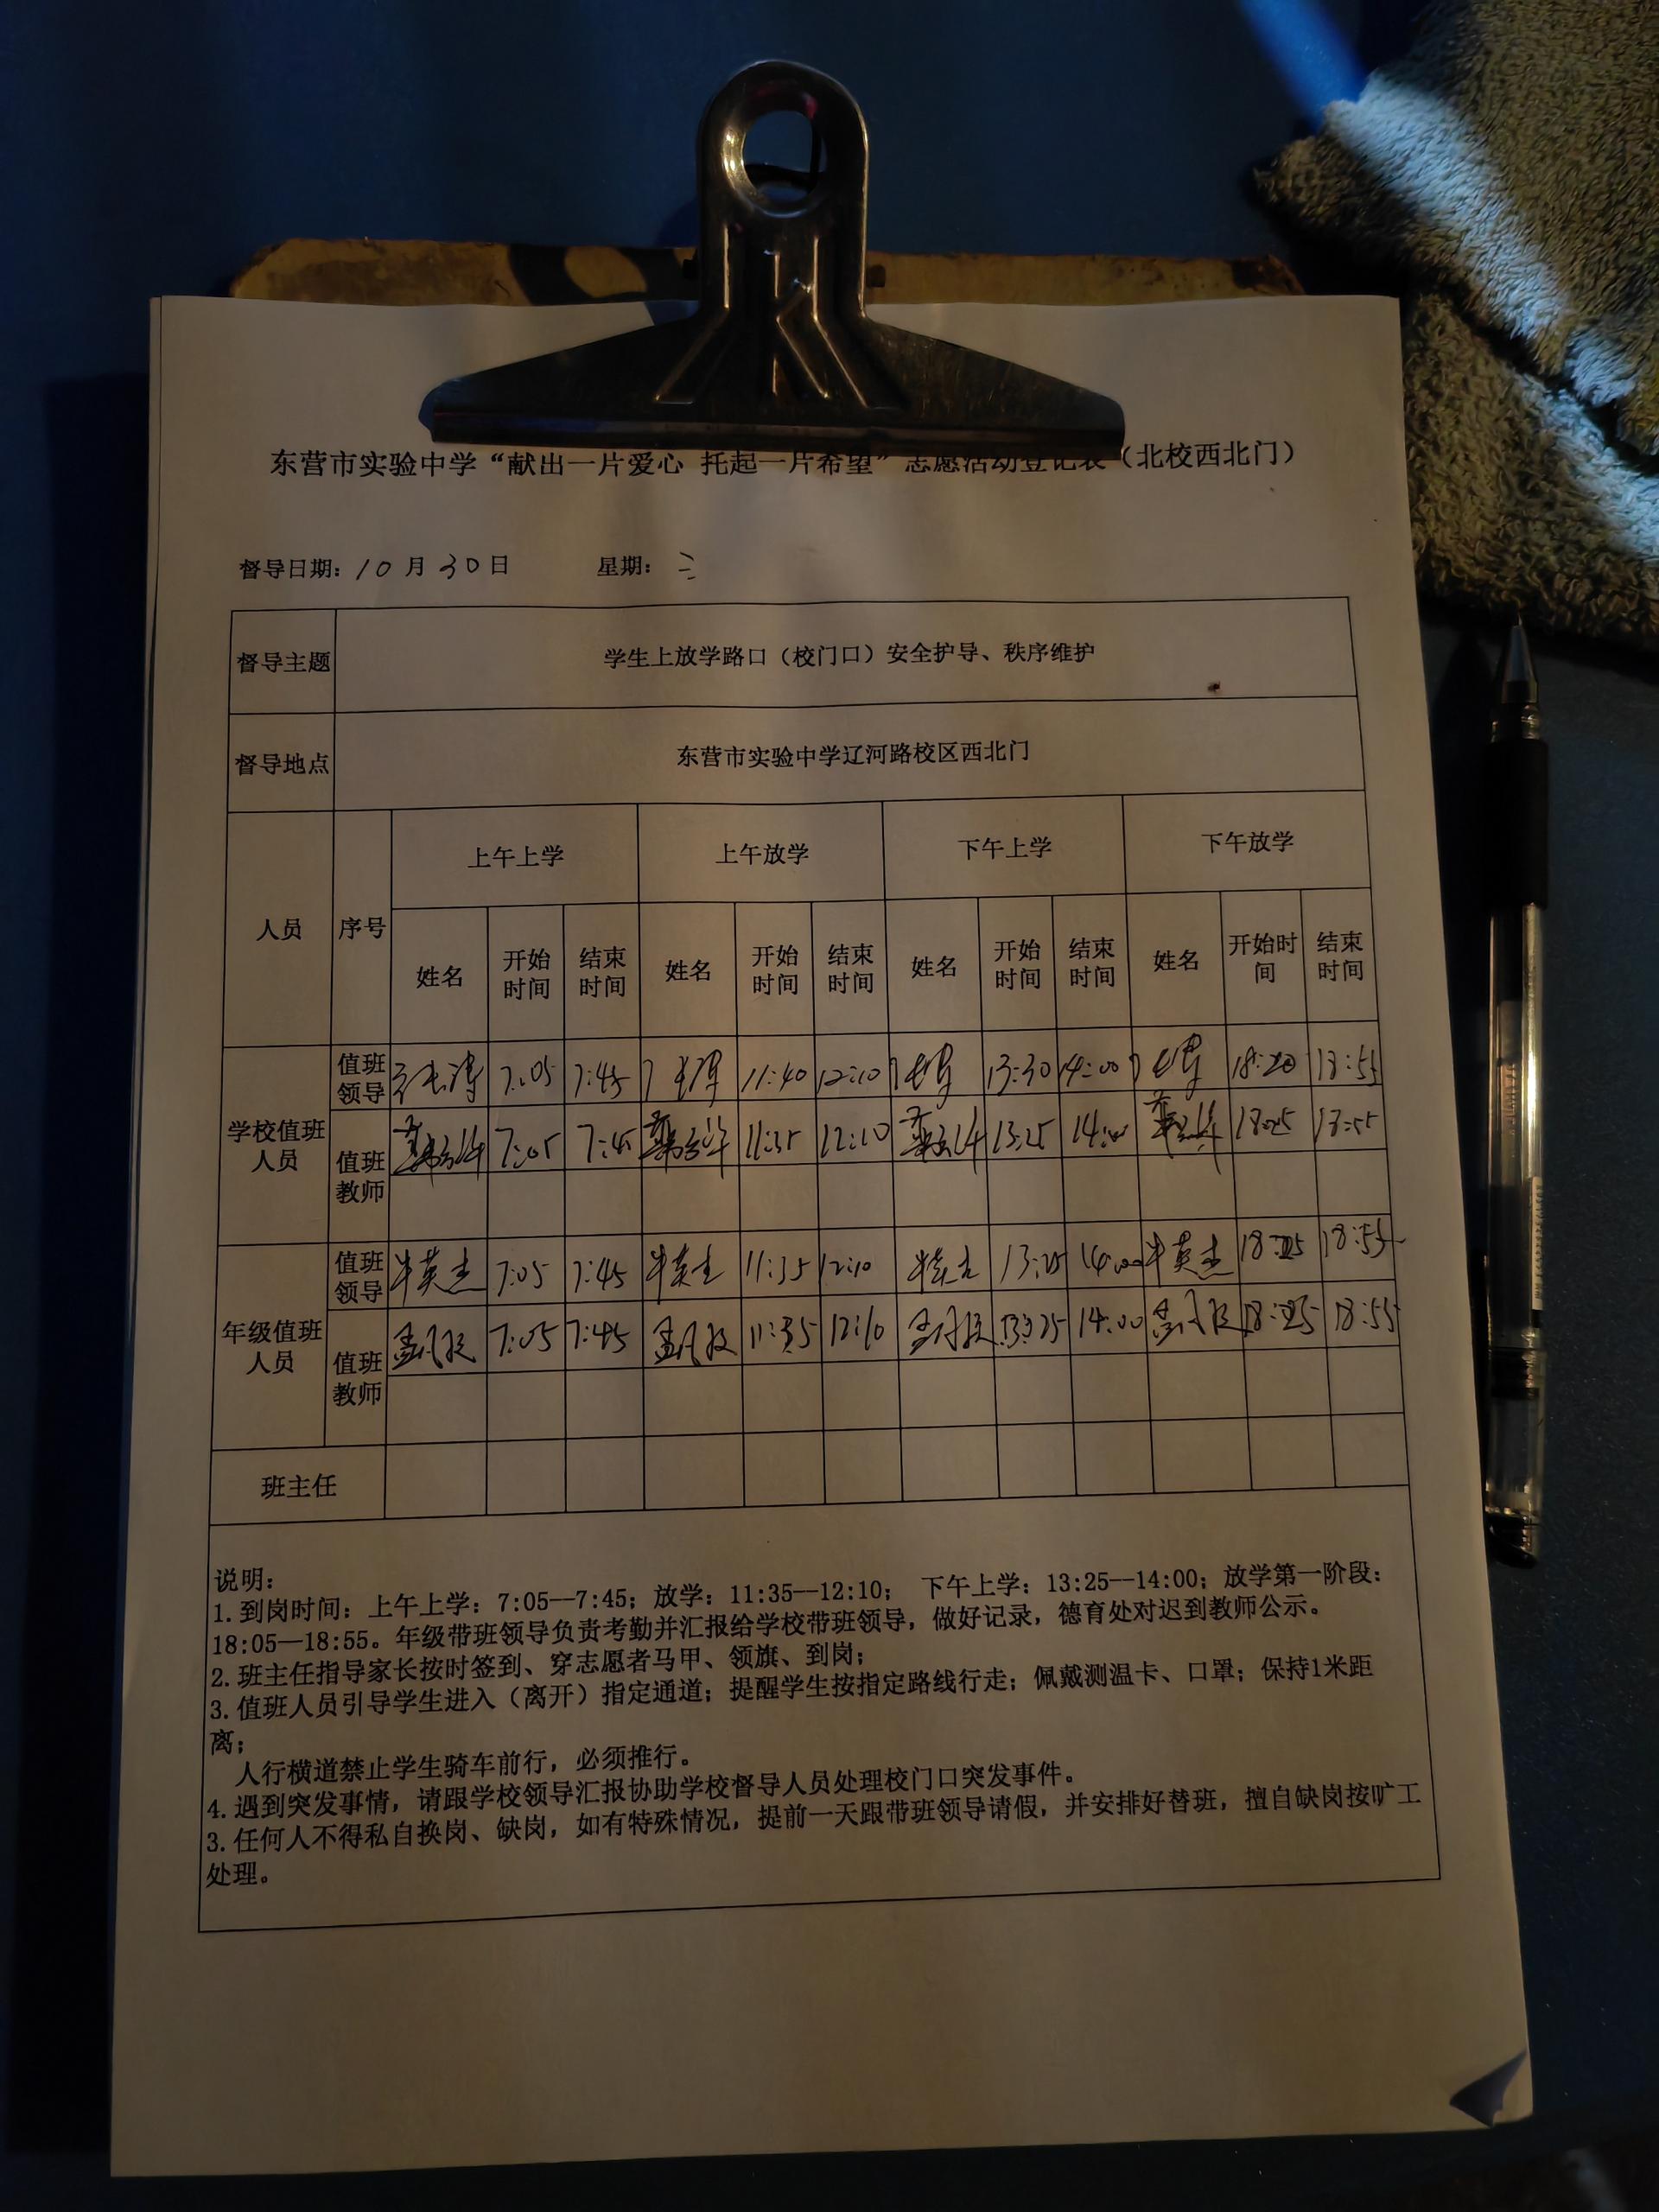 东营市实验中学“献出一片爱心 托起一片希望”志愿活动登记表（北校西北门）
督导日期：10月30日 星期：三
督导主题 学生上放学路口（校门口）安全护导、秩序维护
督导地点 东营市实验中学辽河路校区西北门
人员 序号 上午上学 上午放学 下午上学 下午放学
姓名 开始时间 结束时间 姓名 开始时间 结束时间 姓名 开始时间 结束时间 姓名 开始时间 结束时间
学校值班人员 值班领导 7:05 7:45 11:40 12:10 13:30 14:00 18:20 18:55
值班教师 7:05 7:45 11:35 12:10 13:25 14:00 18:25 18:55
年级值班人员 值班领导 牛英杰 7:05 7:45 牛英杰 11:35 12:10 牛英杰 13:25 14:00 牛英杰 18:25 18:55
值班教师 7:05 7:45 11:35 12:10 13:25 14:00 18:25 18:55
班主任
说明：
1.到岗时间：上午上学：7:05--7:45；放学：11:35--12:10； 下午上学：13:25--14:00；放学第一阶段：
18:05—18:55。年级带班领导负责考勤并汇报给学校带班领导，做好记录，德育处对迟到教师公示。
2.班主任指导家长按时签到、穿志愿者马甲、领旗、到岗；
3.值班人员引导学生进入（离开）指定通道；提醒学生按指定路线行走；佩戴测温卡、口罩；保持1米距
离；
人行横道禁止学生骑车前行，必须推行。
4.遇到突发事情，请跟学校领导汇报协助学校督导人员处理校门口突发事件。
3.任何人不得私自换岗、缺岗，如有特殊情况，提前一天跟带班领导请假，并安排好替班，擅自缺岗按旷工
处理。